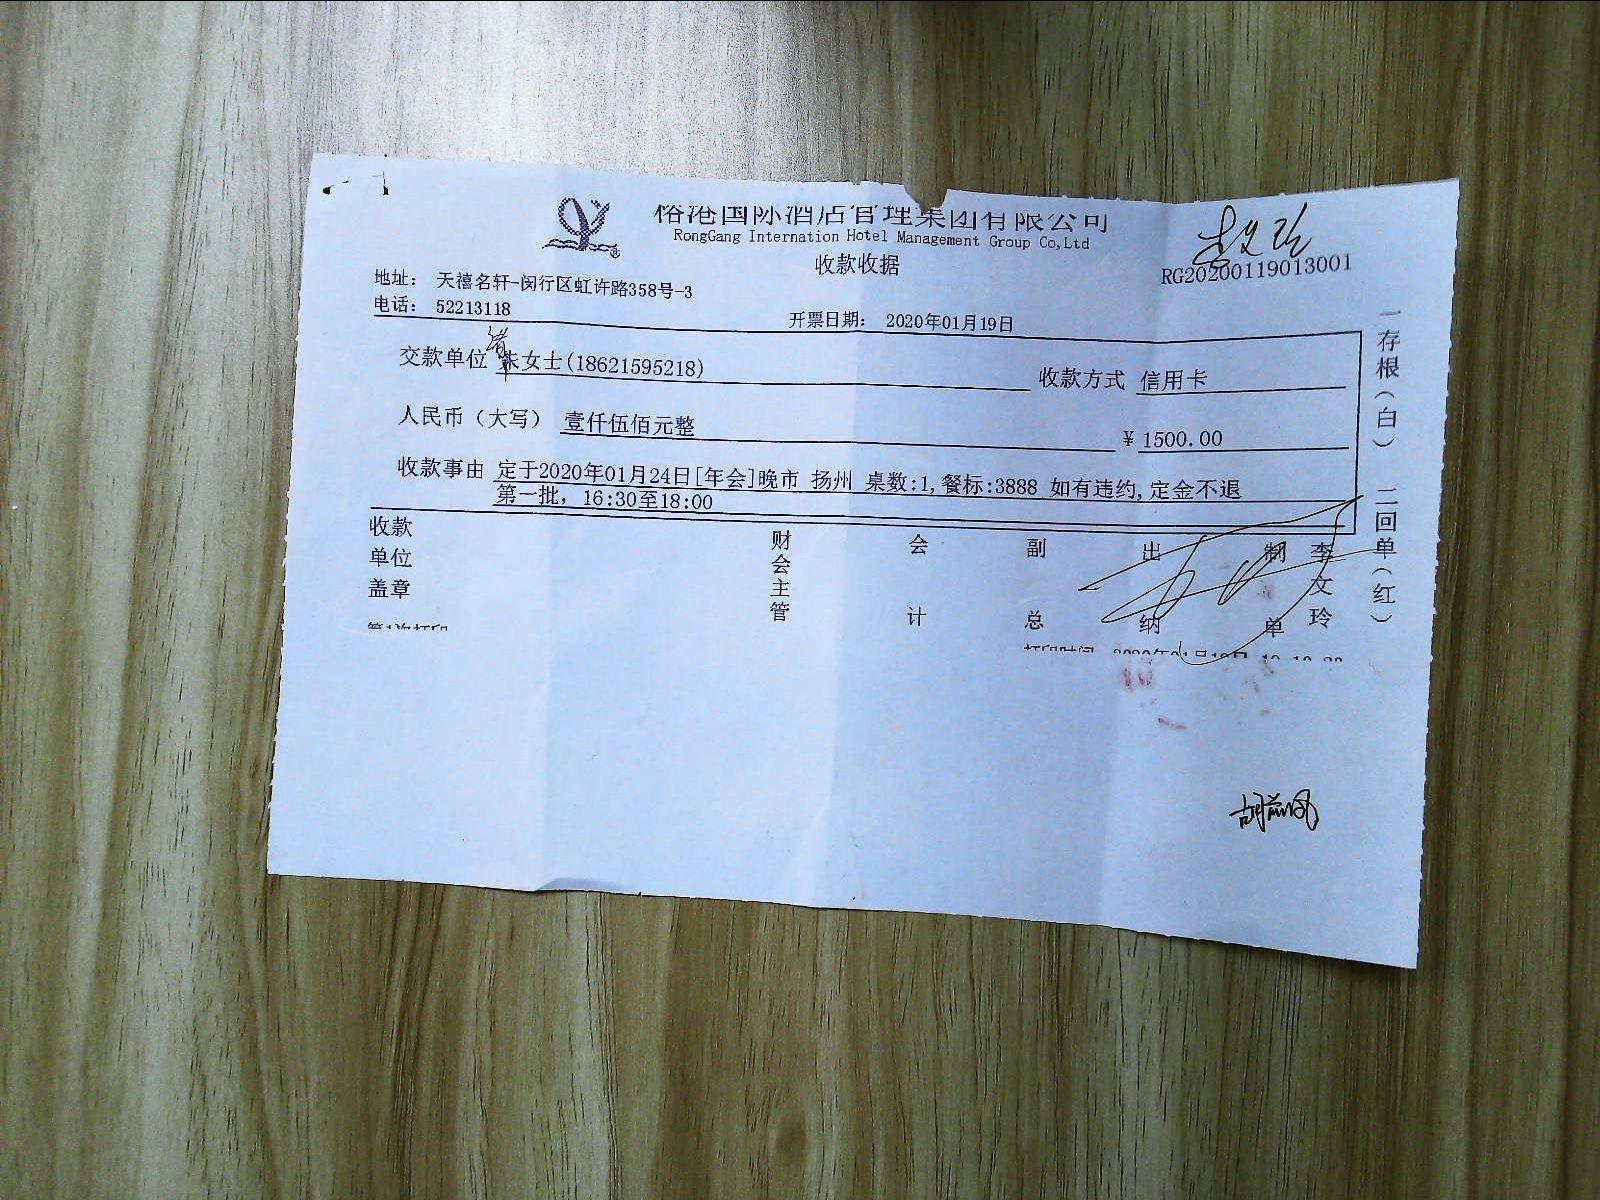 榕港国际酒店管理集团有限公司
RongGang Internation Hotel Management Group Co,Ltd
收款收据
李文玲
RG20200119013001
地址： 天禧名轩-闵行区虹许路358号-3
电话： 52213118
开票日期： 2020年01月19日
交款单位 朱女士(18621595218)
收款方式 信用卡
人民币（大写） 壹仟伍佰元整
￥ 1500.00
收款事由 定于2020年01月24日[年会]晚市 扬州 桌数:1,餐标:3888 如有违约,定金不退
第一批, 16:30至18:00
收款单位盖章
财会主管
会计
副总
出纳
制单
李文玲
一存根（白） 二回单（红）
第1次打印